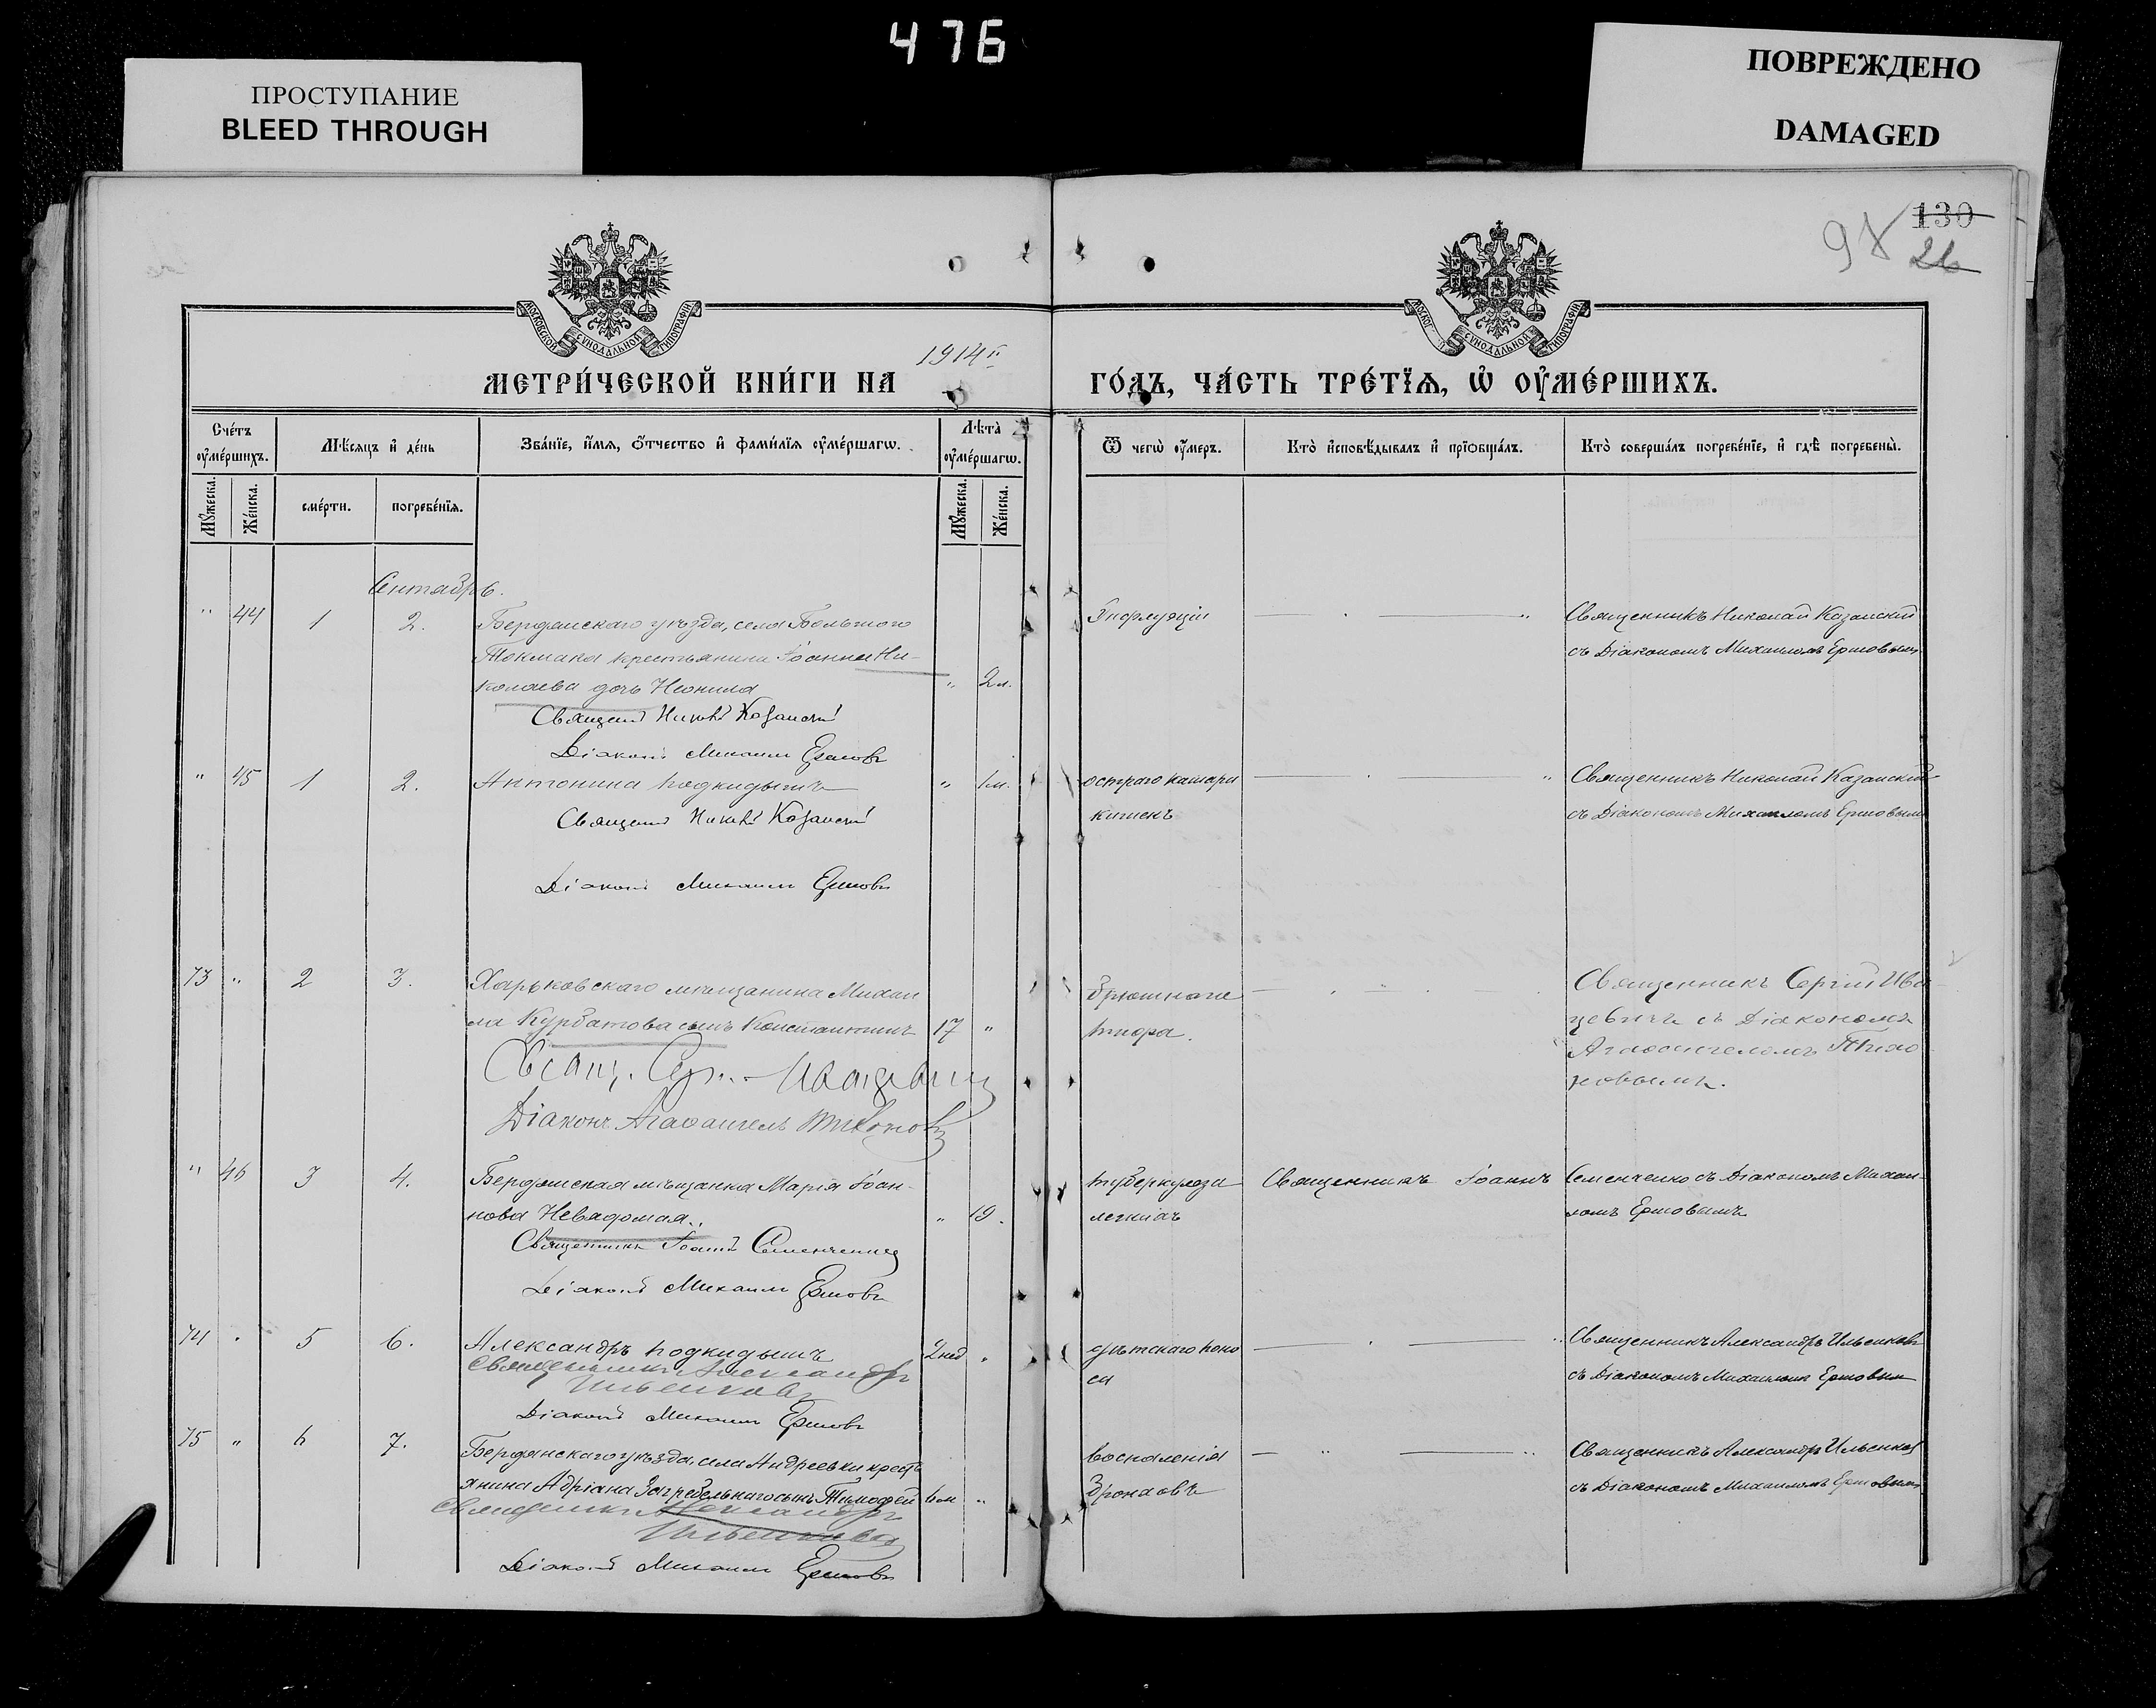 476
ПРОСТУПАНИЕ
BLEED THROUGH
ПОВРЕЖДЕНО
DAMAGED
130
26
98
МОСКОВСКОЙ СѴНОДАЛЬНОЙ ТИПОГРАФІИ
МОСКОВ СѴНОДАЛЬНОЙ ТИПОГРАФІИ
1914
МЕТРИ́ЧЕСКОЙ КНИ́ГИ НА
ГО́ДЪ, ЧА́СТЬ ТРЕ́ТЇѦ, Ѡ҆ ОУ҆МЕ́РШИХЪ.
Сче́тъ оу҆ме́ршихъ.
Мѣ́сяцъ и҆ де́нь
Зва́нїе, и҆́мѧ, ѻ҆́тчество и҆ фами́лїѧ оу҆ме́ршагѡ.
Лѣ́та оу҆ме́ршагѡ.
Ѿ чегѡ̀ оу҆́меръ.
Кто̀ и҆сповѣ́дывалъ и҆ прїѡбща́лъ.
Кто̀ соверша́лъ погребе́нїе, и҆ гдѣ̀ погребены̀.
Мꙋ́жеска.
Же́нска.
сме́рти.
погребе́нїѧ.
Мꙋ́жеска.
Же́нска.
Сентябрь.
" 44 1 2. Бердянскаго уѣзда, села Большого
Токмака крестьянина Іоанна Ни-
колаева дочь Неонила " 2м.
Священ Никол Казанскі
Діаконъ Михаилъ Ершовъ
Инфлуэціи
Священникъ Николай Казанскій
съ Діакономъ Михаиломъ Ершовымъ
" 45 1 2. Антонина подкидышъ " 1м.
Священ Никол Казанскі
Діаконъ Михаилъ Ершовъ
остраго катара
кишекъ
Священникъ Николай Казанскій
съ Діакономъ Михаиломъ Ершовымъ
73 " 2 3. Харьковскаго мѣщанина Михаи
ла Курбатова сынъ Константинъ 17 "
Свящ. Сер. Иващевичъ
Діаконъ Агаѳангелъ Тихоновъ
Брюшного
тифа.
Священникъ Сергій Ива
щевичъ съ Діакономъ
Агаѳангеломъ Тихо
новымъ.
" 46 3 4. Бердянская мѣщанка Марія Іоан-
нова Невядомая. " 19.
Священникъ Іоаннъ Семенченко
Діаконъ Михаилъ Ершовъ
туберкулеза
легкихъ
Священникъ Іоаннъ Семенченко съ Діакономъ Михаи-
ломъ Ершовымъ
74 " 5 6. Александръ подкидышъ 2нед "
Священникъ Александръ
Ильенковъ
Діаконъ Михаилъ Ершовъ
дѣтскаго поно
са
Священникъ Александръ Ильенковъ
съ Діакономъ Михаиломъ Ершовым
75 " 6 7. Бердянскаго уѣзда, села Андреевки кресть
янина Адріана Загребельнаго сынъ Тимофей 6м "
Священникъ Александръ
Ильенковъ
Діаконъ Михаилъ Ершовъ
воспаленія
Бронховъ
Священникъ Александръ Ильенков
съ Діакономъ Михаиломъ Ершовымъ